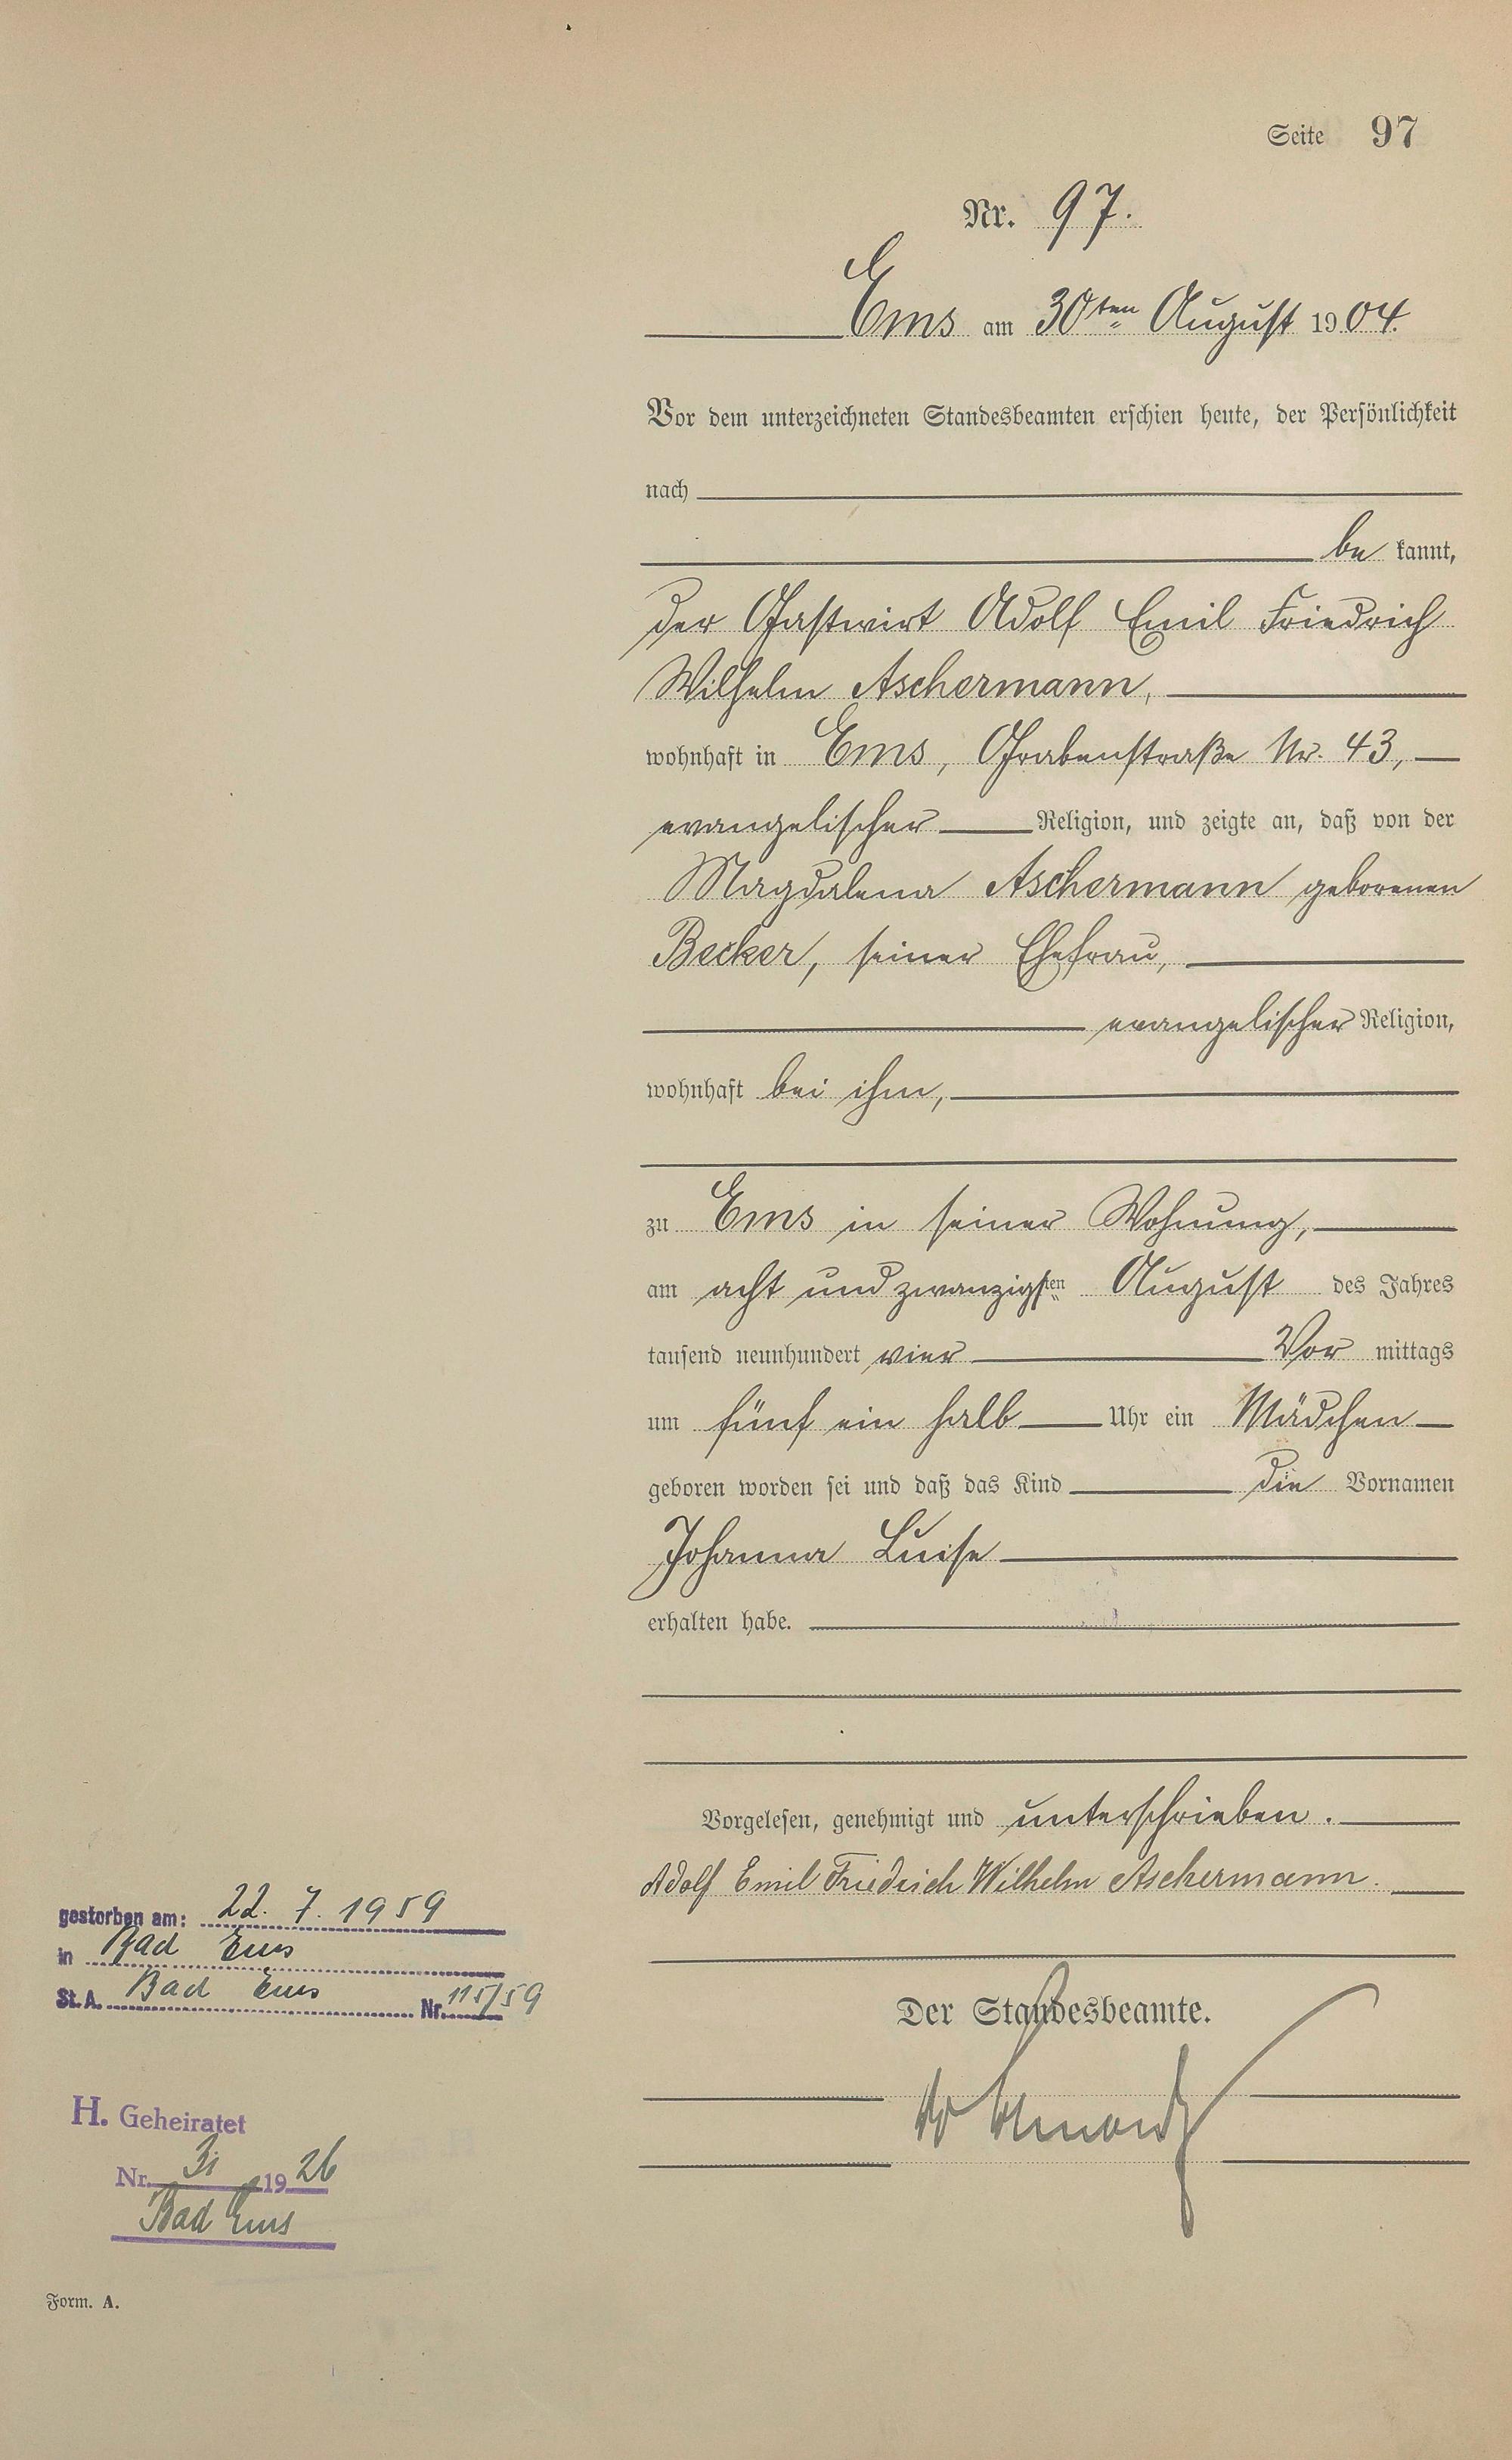 Seite 97
Nr. 97.
Ems am 30ten August 1904.
Vor dem unterzeichneten Standesbeamten erschien heute, der Persönlichkeit
nach
be kannt,
der Gastwirt Adolf Emil Friedrich
Wilhelm Aschermann,
wohnhaft in Ems, Grabenstraße Nr. 43,
evangelischer Religion, und zeigte an, daß von der
Magdalena Aschermann geborenen
Becker, seiner Ehefrau,
evangelischer Religion,
wohnhaft bei ihm,
zu Ems in seiner Wohnung,
am acht und zwanzigsten August des Jahres
tausend neunhundert vier Vor mittags
um fünf ein halb Uhr ein Mädchen
geboren worden sei und daß das Kind die Vornamen
Johanna Luise
erhalten habe.
Vorgelesen, genehmigt und unterschrieben.
Adolf Emil Friedrich Wilhelm Aschermann.
Der Standesbeamte.
gestorben am: 22. 7. 1959
in Bad Ems
St. A. Bad Ems Nr. 115/59
H. Geheiratet
Nr. 1926
Bad Ems
Form. A.